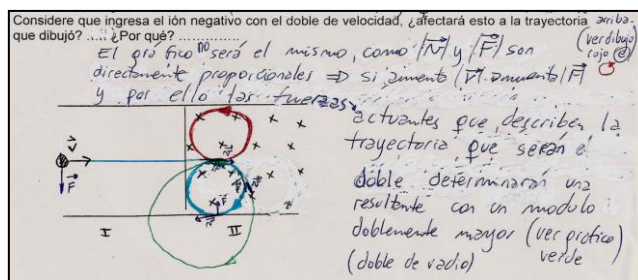 Considere que ingresa el ión negativo con el doble de velocidad, ¿afectará esto a la trayectoria
que dibujó? ..... ¿Por qué? ...............
arriba
(ver dibujo
rojo e)
El gráfico no será el mismo, como |V| y |F| son
directamente proporcionales ⇒ si aumenta |V| aumenta |F|
y por ello las fuerzas
actuantes que describen la
trayectoria que serán el
doble determinarán una
resultante con un modulo
doblemente mayor (ver gráfico
(doble de radio) verde
V
F
F
I
II